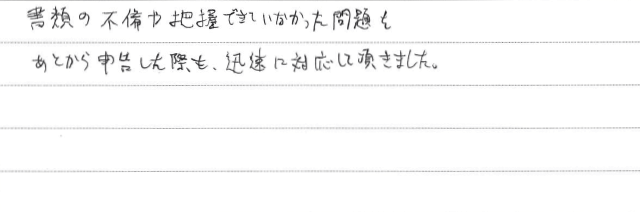 書類の不備や把握できていなかった問題を
あとから申告した際も、迅速に対応して頂きました。